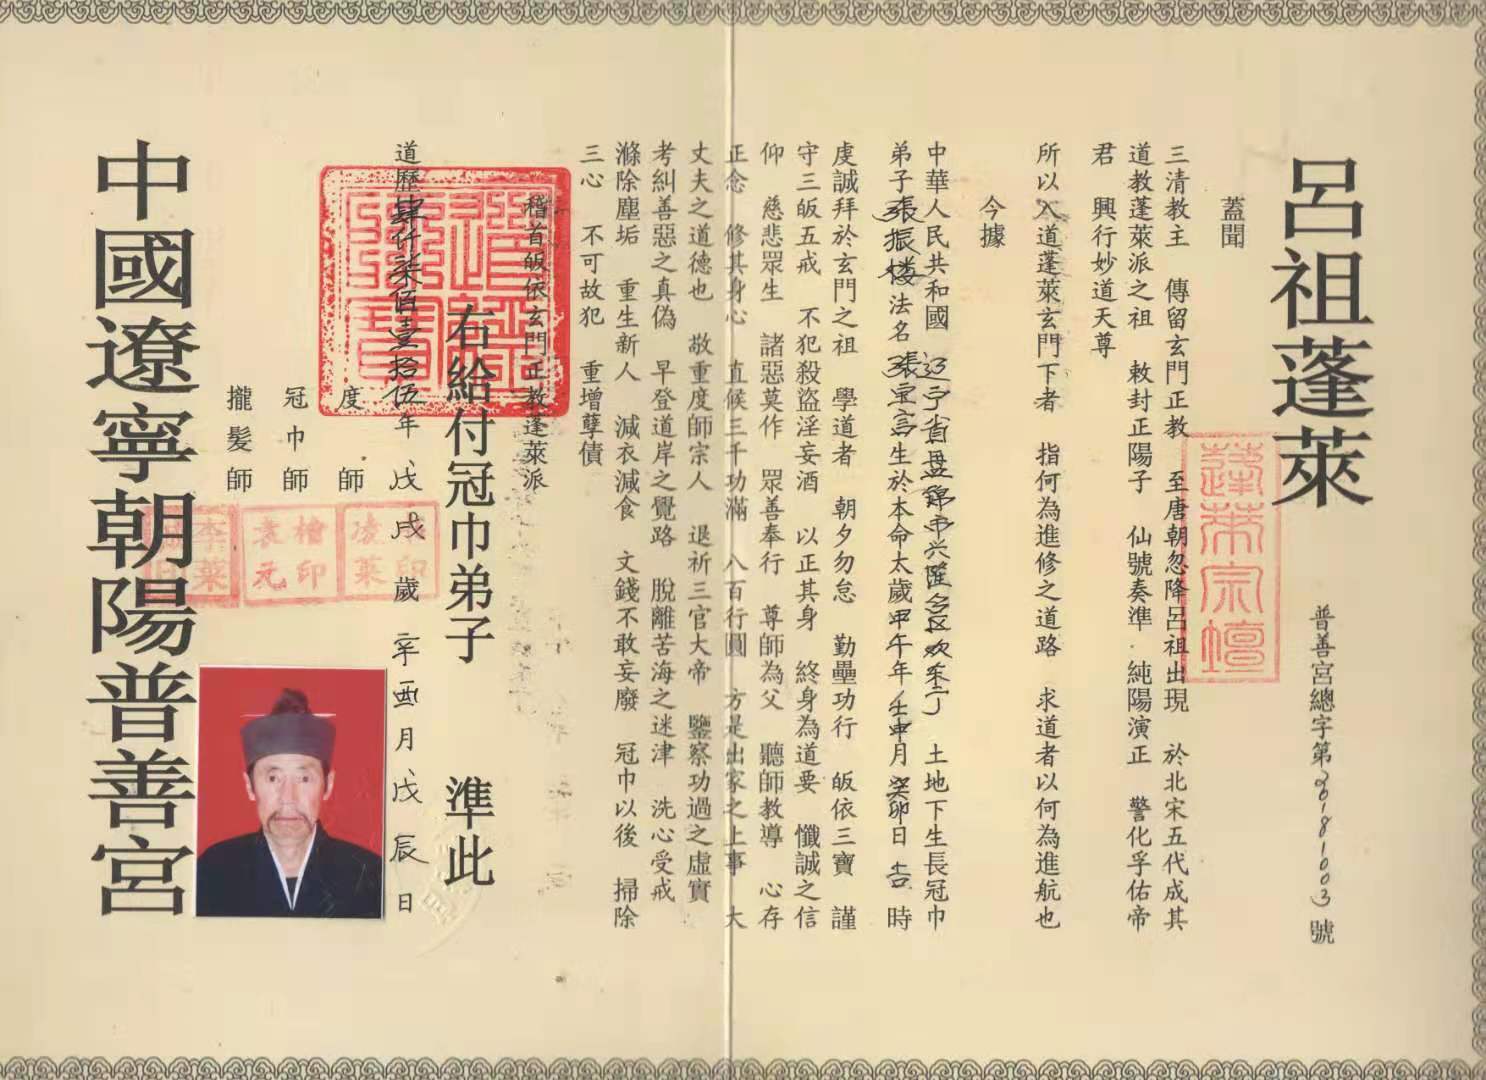 呂祖蓬萊
普善宮總字第20181003號
蓬萊宗壇
蓋聞
三清教主 傳留玄門正教 至唐朝忽降呂祖出現 於北宋五代成其
道教蓬萊派之祖 敕封正陽子 仙號奏準 純陽演正 警化孚佑帝
君 興行妙道天尊
所以入道蓬萊玄門下者 指何為進修之道路 求道者以何為進航也
今據
中華人民共和國 辽宁省盘锦市兴隆台区欢 土地下生長冠巾
弟子張振楼法名張宗言生於本命太歲甲午年壬申月癸卯日吉時
虔誠拜於玄門之祖 學道者 朝夕勿怠 勤壘功行 皈依三寶 謹
守三皈五戒 不犯殺盜淫妄酒 以正其身 終身為道要 懺誠之信
仰 慈悲眾生 諸惡莫作 眾善奉行 尊師為父 聽師教導 心存
正念 修其身心 直候三千功滿 八百行圓 方是出家之上事 大
丈夫之道德也 敬重度師宗人 退祈三官大帝 鑒察功過之虛實
考糾善惡之真偽 早登道岸之覺路 脫離苦海之迷津 洗心受戒
滌除塵垢 重生新人 減衣減食 文錢不敢妄廢 冠巾以後 掃除
三心 不可故犯 重增孽債
稽首皈依玄門正教蓬萊派
右給付冠巾弟子 準此
道歷肆仟柒佰壹拾伍年戊戌歲辛酉月戊辰日
度師
冠巾師
攏髮師
中國遼寧朝陽普善宮